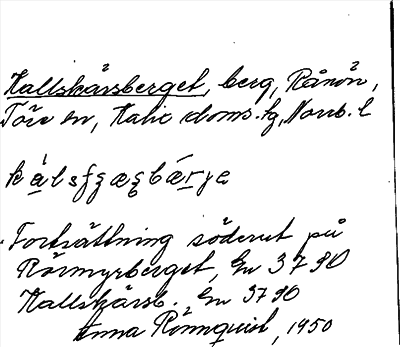 Kallskärsberget, berg, Rånön,
Töre sn, Kalix doms.tg, Norrb. l
kálsfzæzbǽrje
Fortsättning söderut på
Rörmyrberget, Gn 3790
Kallskärsb. Gn 3790
Anna Rönnquist, 1950